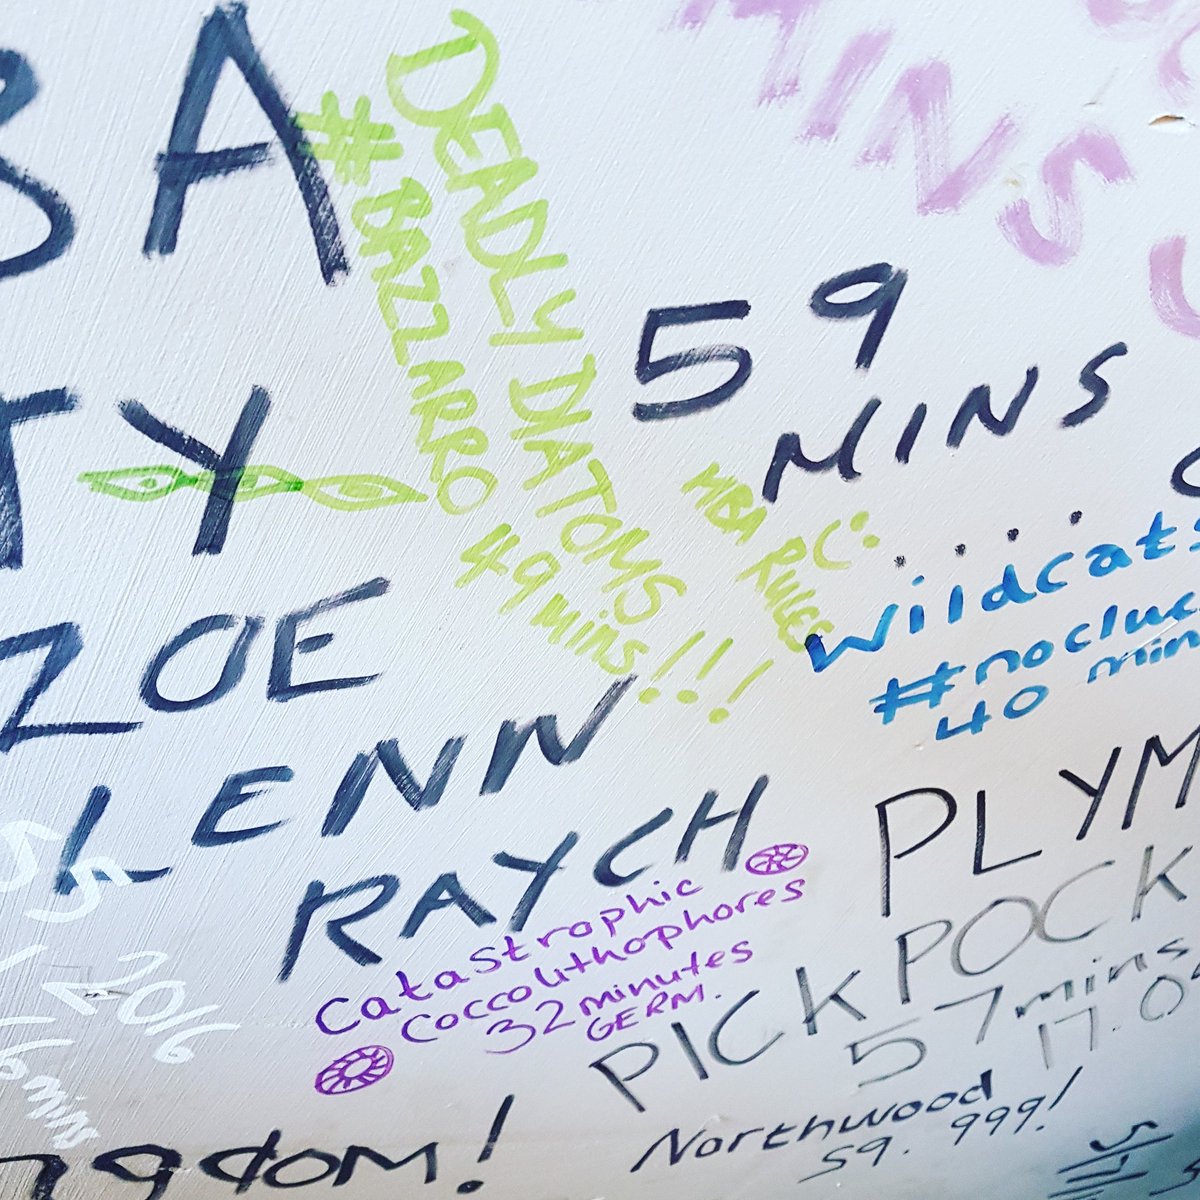 BA
MINS
DEADLY DIATOMS!!!
#BAZZARRO
49 mins
59
MINS
....
MBA RULES
C:
Wildcats
#noclue
40 min
TY
ZOE
LENN
RAYCH
Catastrophic
coccolithophores
32 minutes
GERM.
PLYM
PICKPOCK
57 mins
17.0
Northwood
59. 999!
55
2016
16 mins
ngdom!